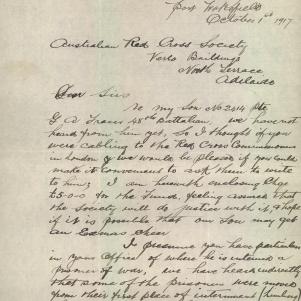 Port Wakefield
October 1st 1917
Australian Red Cross Society
Verco Buildings
North Terrace
Adelaide
Dear Sirs
re my Son No 2414 Pte
G A Fraser 48th Battalion, we have not
heard from him yet, So I thought if you
were cabling to the Red Cross Commissioners
in London & we would be pleased if you could
make it convenient to ask them to write
to him; I am herewith enclosing Chqe
£5-0-0 for the Fund, feeling assured that
the Society will do justice with it, & hope
if it is possible that our Son may get
an Exmas Cheer
I presume you have particulars
in your office of where he is interned a
prisoner of war, we have heard indirectly
that some of the prisoners were moved
from their first place of internment